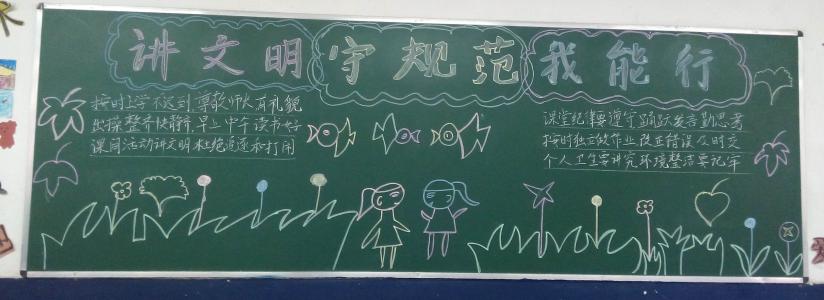 讲文明 守规范 我能行
按时上学不迟到 尊敬师长有礼貌
出操整齐快静齐 早上中午读书好
课间活动讲文明 杜绝追逐和打闹
课堂纪律要遵守 踊跃发言勤思考
按时独立做作业 改正错误及时交
个人卫生要讲究 环境整洁要记牢